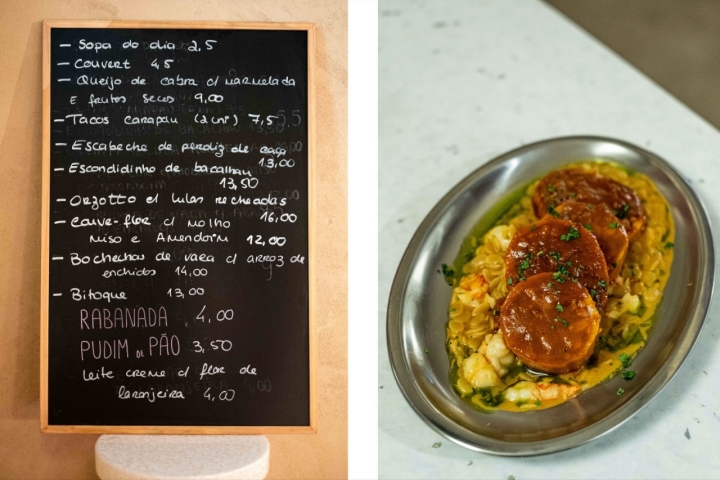 - Sopa do dia 2,5
- Couvert 4,5
- Queijo de cabra c/ marmelada
e frutos secos 9,00
- Tacos carapau (2 uni) 7,5
- Escabeche de perdiz de caça
13,00
- Escondidinho de bacalhau
13,50
- Orzotto c/ lulas recheadas
16,00
- Couve-flor c/ molho
miso e Amendoim 12,00
- Bochechas de vaca c/ arroz de
enchidos 14,00
- Bitoque 13,00
RABANADA 4,00
PUDIM DE PÃO 3,50
Leite creme c/ flor de
laranjeira 4,00